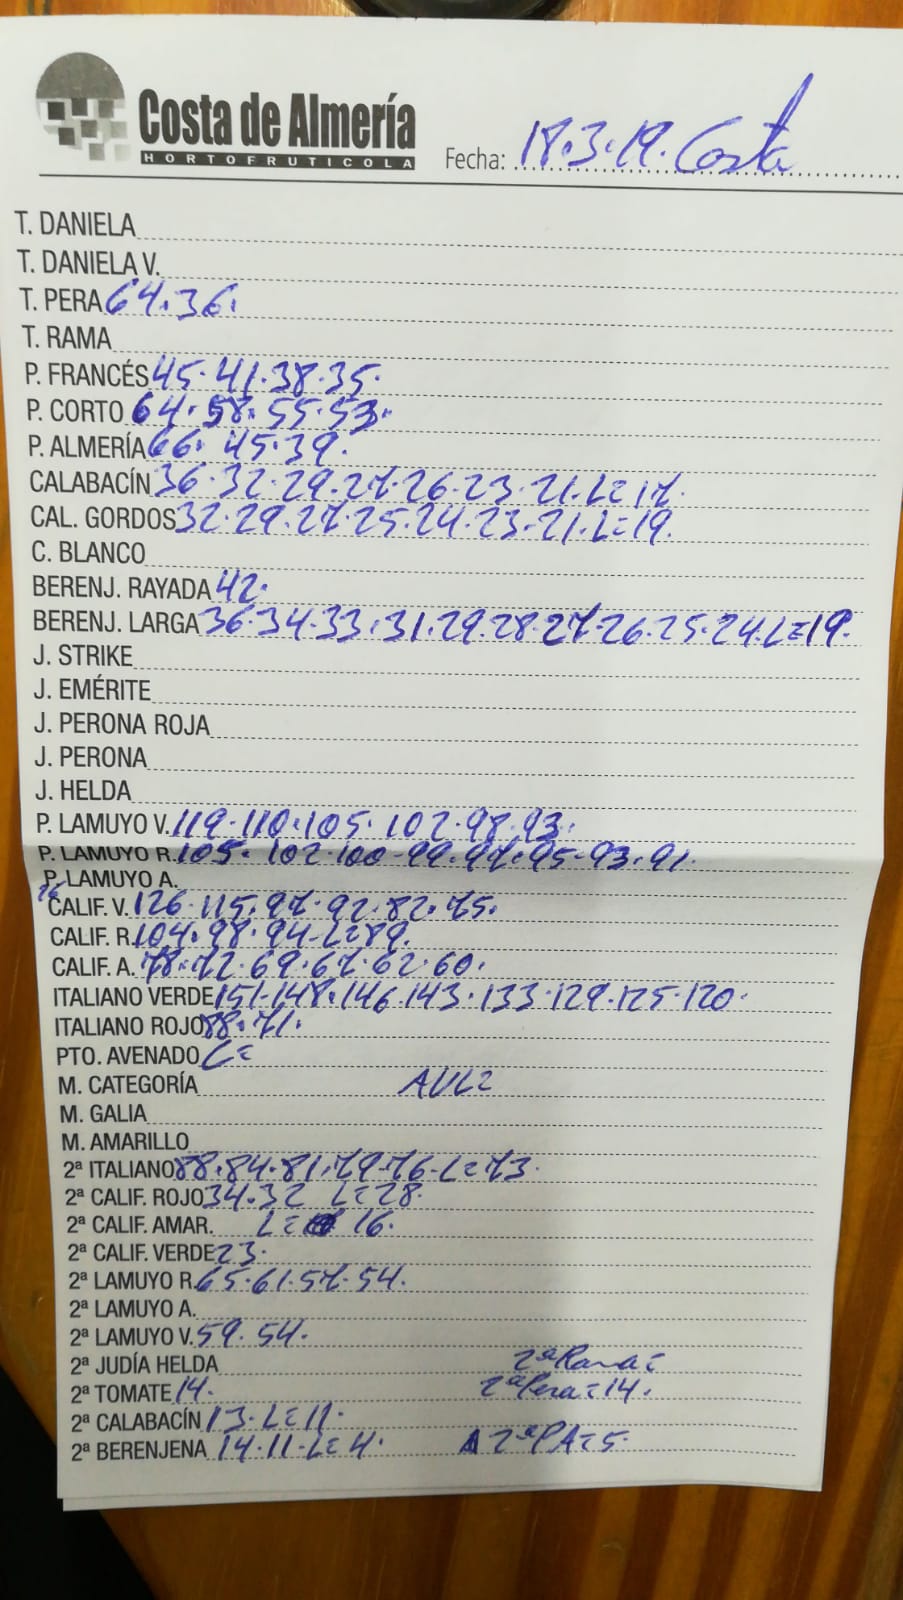 Costa de Almería
HORTOFRUTICOLA
Fecha: 18.3.19. Costa
T. DANIELA
T. DANIELA V.
T. PERA 64.36.
T. RAMA
P. FRANCÉS 45.41.38.35.
P. CORTO 64.58.55.53.
P. ALMERÍA 66. 45.39.
CALABACÍN 36.32.29.27.26.23.21.L=17.
CAL. GORDOS 32.29.27.25.24.23.21.L=19.
C. BLANCO
BERENJ. RAYADA 42.
BERENJ. LARGA 36.34.33.31.29.28.27.26.25.24.L=19.
J. STRIKE
J. EMÉRITE
J. PERONA ROJA
J. PERONA
J. HELDA
P. LAMUYO V. 119.110.105.102.98.93.
P. LAMUYO R. 105.102.100.99.97.95.93.91.
P. LAMUYO A.
CALIF. V. 126.115.97.92.82.75.
CALIF. R. 104.98.94.L=89.
CALIF. A. 78.72.69.67.62.60.
ITALIANO VERDE 151.148.146.143.133.129.125.120.
ITALIANO ROJO 88.71.
PTO. AVENADO L=
M. CATEGORÍA
M. GALIA
M. AMARILLO
2ª ITALIANO 88.84.81.79.76.L=73.
2ª CALIF. ROJO 34.32 L=28.
2ª CALIF. AMAR. L= 16.
2ª CALIF. VERDE 23.
2ª LAMUYO R. 65.61.57.54.
2ª LAMUYO A.
2ª LAMUYO V. 59.54.
2ª JUDÍA HELDA 2ª Rama=
2ª TOMATE 14. 2ª Pera=14.
2ª CALABACÍN 13.L=11.
2ª BERENJENA 14.11.L=4. 2ª PA=5.